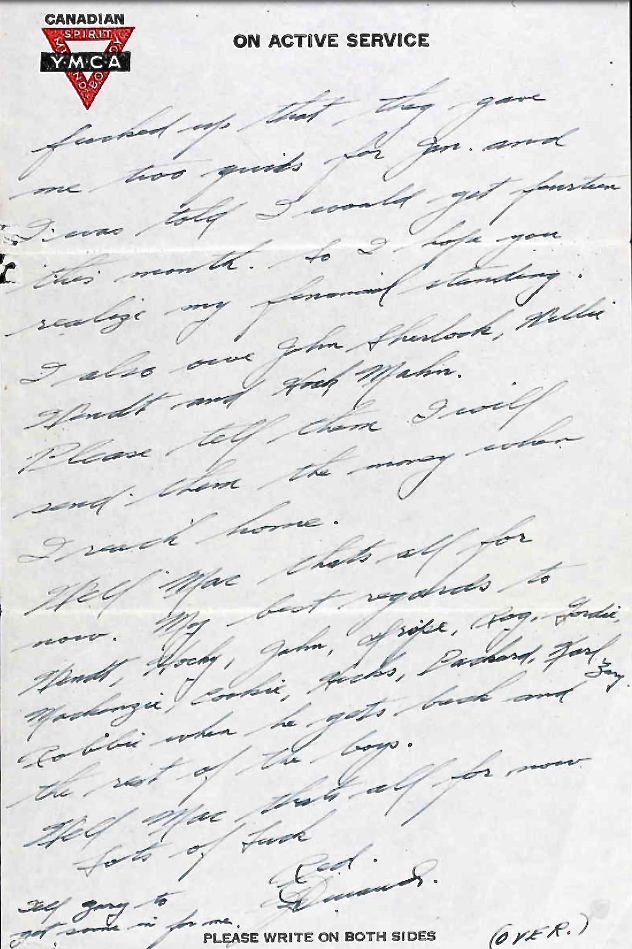 CANADIAN
SPIRIT
Y·M·C·A
MIND BODY
ON ACTIVE SERVICE
fucked up that they gave
me two quids for Jan. and
I was told I would get fourteen
this month. So I hope you
realize my financial standing.
I also owe John Sherlock, Willie
Wendt and Hock Mahn.
Please tell them I will
send them the money when
I reach home.
Well Mac thats all for
now. My best regards to
Wendt, Hocky, John, Roy, Gordie,
Mackenzie, Cookie, Hicks, Packard, Karl,
Robbie when he gets back and
the rest of the boys.
Well Mac thats all for now
Lots of Luck
Red.
Tell Gary to
get some in for me.
PLEASE WRITE ON BOTH SIDES
(OVER.)